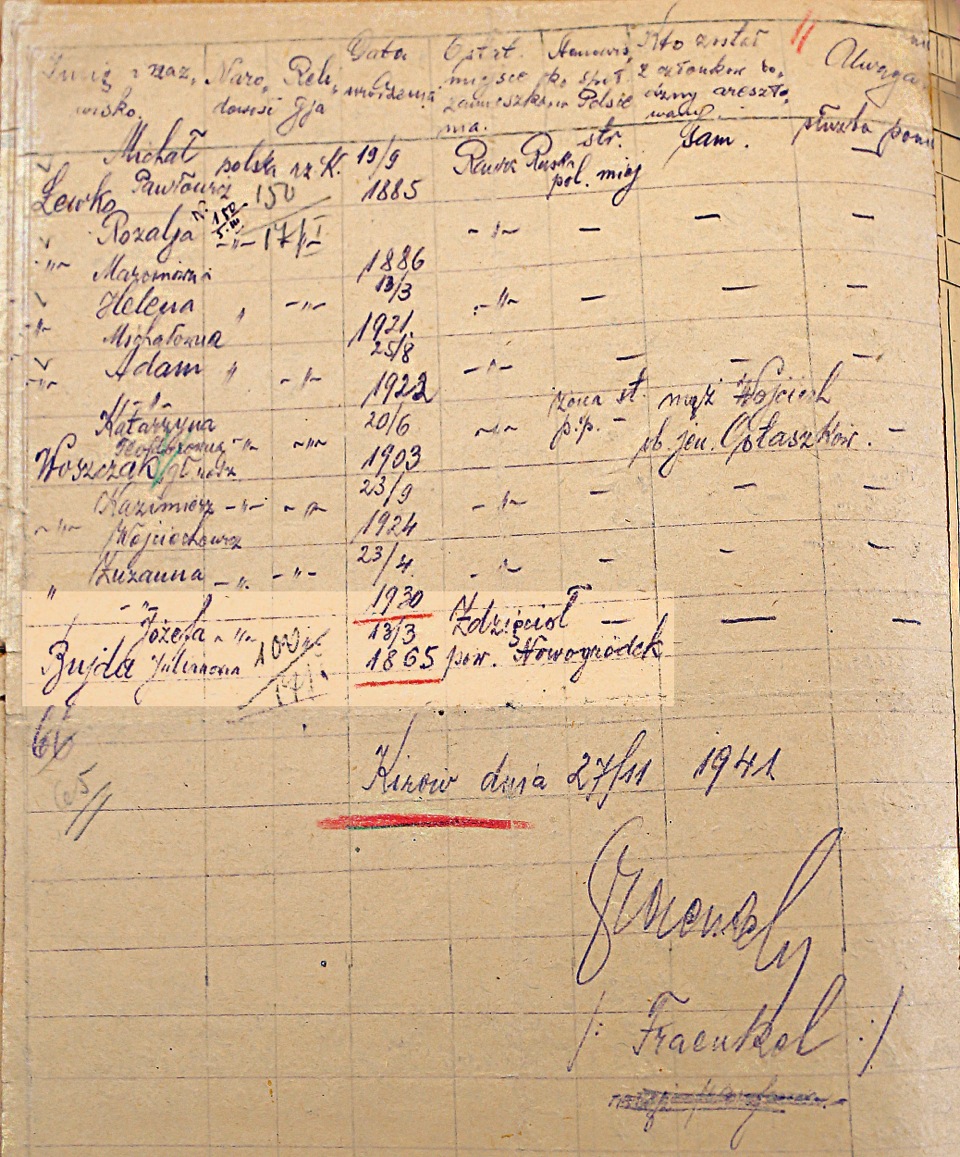 Imię i naz- Naro- Reli- Data Ostat. Stanowis- Kto został Uwaga
wisko. dowość gja urodzenia miejsce ko społ. z członków ro-
zamieszka- w Polsce dziny areszto-
nia. wany.
Michał polska rz K. 19/9 Rawa Ruska str. sam. służba
Lewko Pawłowicz 150 1885 pol. miej
Rozalja 17/I -"- — —
-"- 1886
Helena " -"- 13/3 -"- — — —
-"- Michałowna 1921.
Adam " -"- 25/8 -"- — — —
-"- -"- 1922
Katarzyna 20/6 -"- żona st. mąż Wojciech
Woszczak -"- -"- 1903 p.p. — ob. jen. Ostaszków. -
Kazimierz -"- -"- 23/9 -"- — — —
-"- Wojciechowicz 1924
Zuzanna -"- -"- 23/4 -"- — — —
" -"- 1930
Józefa -"- 13/3 Zdzięcioł — — —
Bujda Juljanowna 171. 1865 pow. Nowogródek
65
Kirow dnia 27/11 1941
/: Fraenkel :/